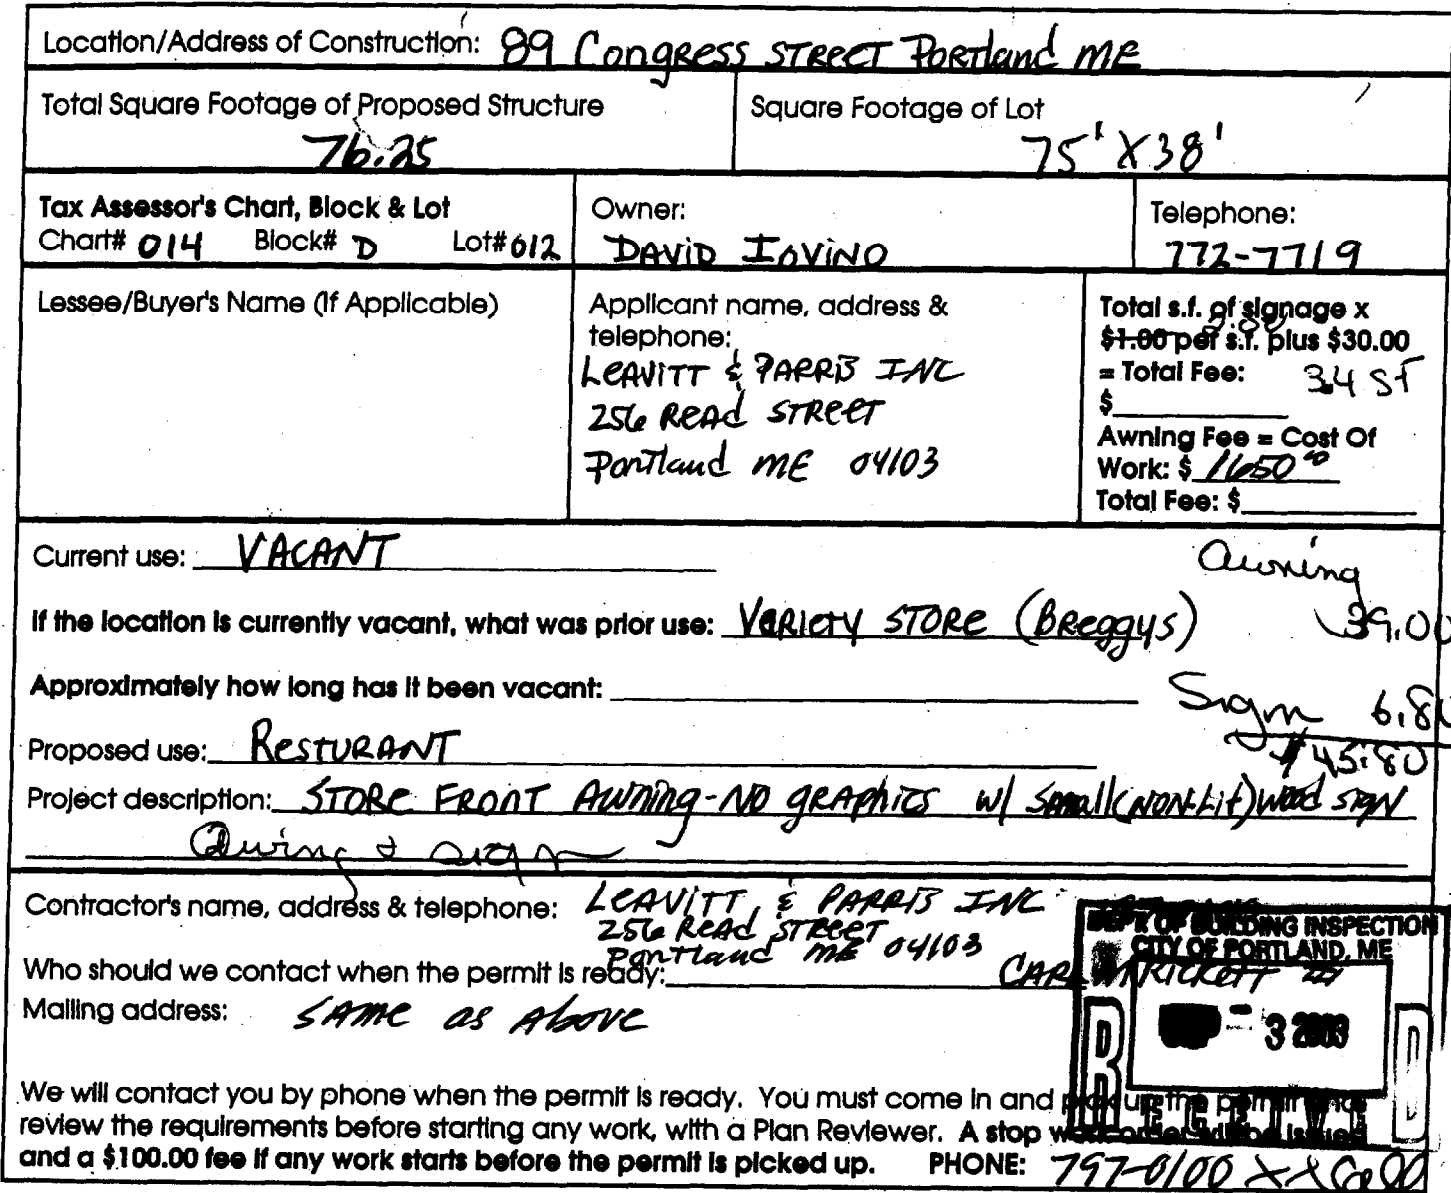 Location/Address of Construction: 89 Congress Street Portland ME
Total Square Footage of Proposed Structure
76.25
Square Footage of Lot
75' X 38'
Tax Assessor's Chart, Block & Lot
Chart# 014 Block# D Lot# 012
Owner:
David Iovino
Telephone:
772-7719
Lessee/Buyer's Name (If Applicable)
Applicant name, address &
telephone:
Leavitt & Parris Inc
256 Read Street
Portland ME 04103
Total s.f. of signage x
$1.00 per s.f. plus $30.00
= Total Fee: 3.4 SF
$
Awning Fee = Cost Of
Work: $ 1650.00
Total Fee: $
Current use: VACANT
Awning
39.00
If the location is currently vacant, what was prior use: Variety Store (Breggys)
Approximately how long has it been vacant:
Sign 6.80
$45.80
Proposed use: Resturant
Project description: Store Front Awning - No graphics w/ Small (Non-Lit) wood sign
Awing & sign
Contractor's name, address & telephone: Leavitt & Parris Inc
256 Read Street
Portland ME 04103
Who should we contact when the permit is ready:
Mailing address: Same as Above
DEPT. OF BUILDING INSPECTION
CITY OF PORTLAND, ME
3 2003
RECEIVED
We will contact you by phone when the permit is ready. You must come in and pick up the permit and
review the requirements before starting any work, with a Plan Reviewer. A stop work order will be issued
and a $100.00 fee if any work starts before the permit is picked up. PHONE: 797-0100